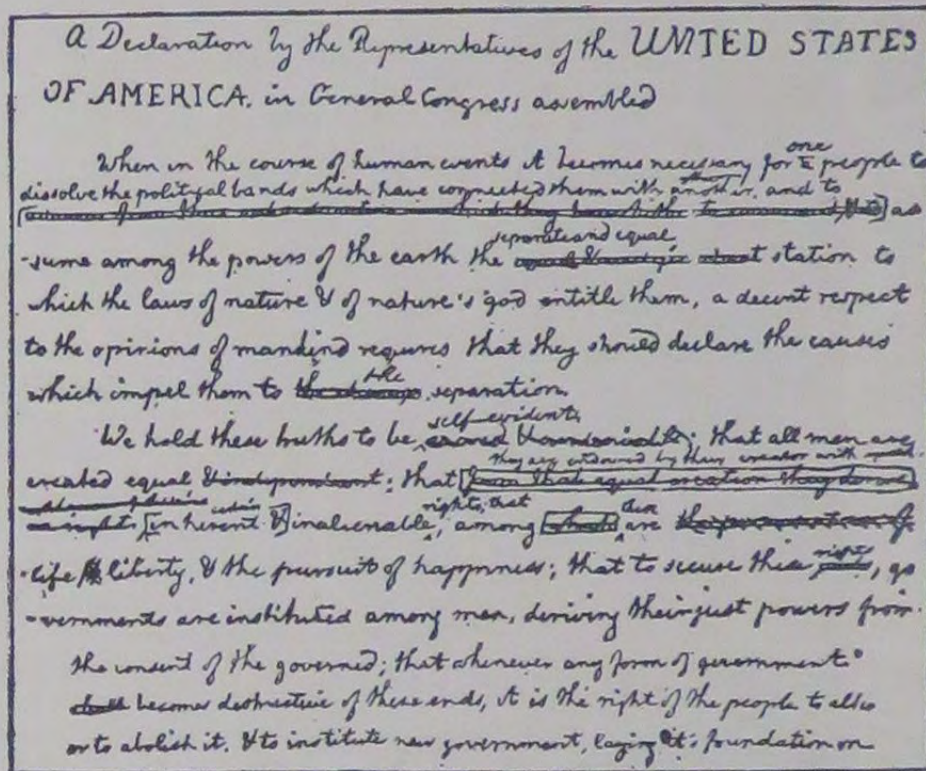 A Declaration by the Representatives of the UNITED STATES
OF AMERICA. in General Congress assembled
When in the course of human events it becomes necessary for one people to
dissolve the political bands which have connected them with another, and to
as
-sume among the powers of the earth the separate and equal station to
which the laws of nature & of nature's god entitle them, a decent respect
to the opinions of mankind requires that they should declare the causes
which impel them to the separation.
We hold these truths to be self-evident; that all men are
created equal & independent; that they are endowed by their creator with
[inherent &] inalienable rights, that among these are
life liberty, & the pursuit of happiness; that to secure these rights, go
-vernments are instituted among men, deriving their just powers from
the consent of the governed; that whenever any form of government
shall becomes destructive of these ends, it is the right of the people to alter
or to abolish it, & to institute new government, laying it's foundation on